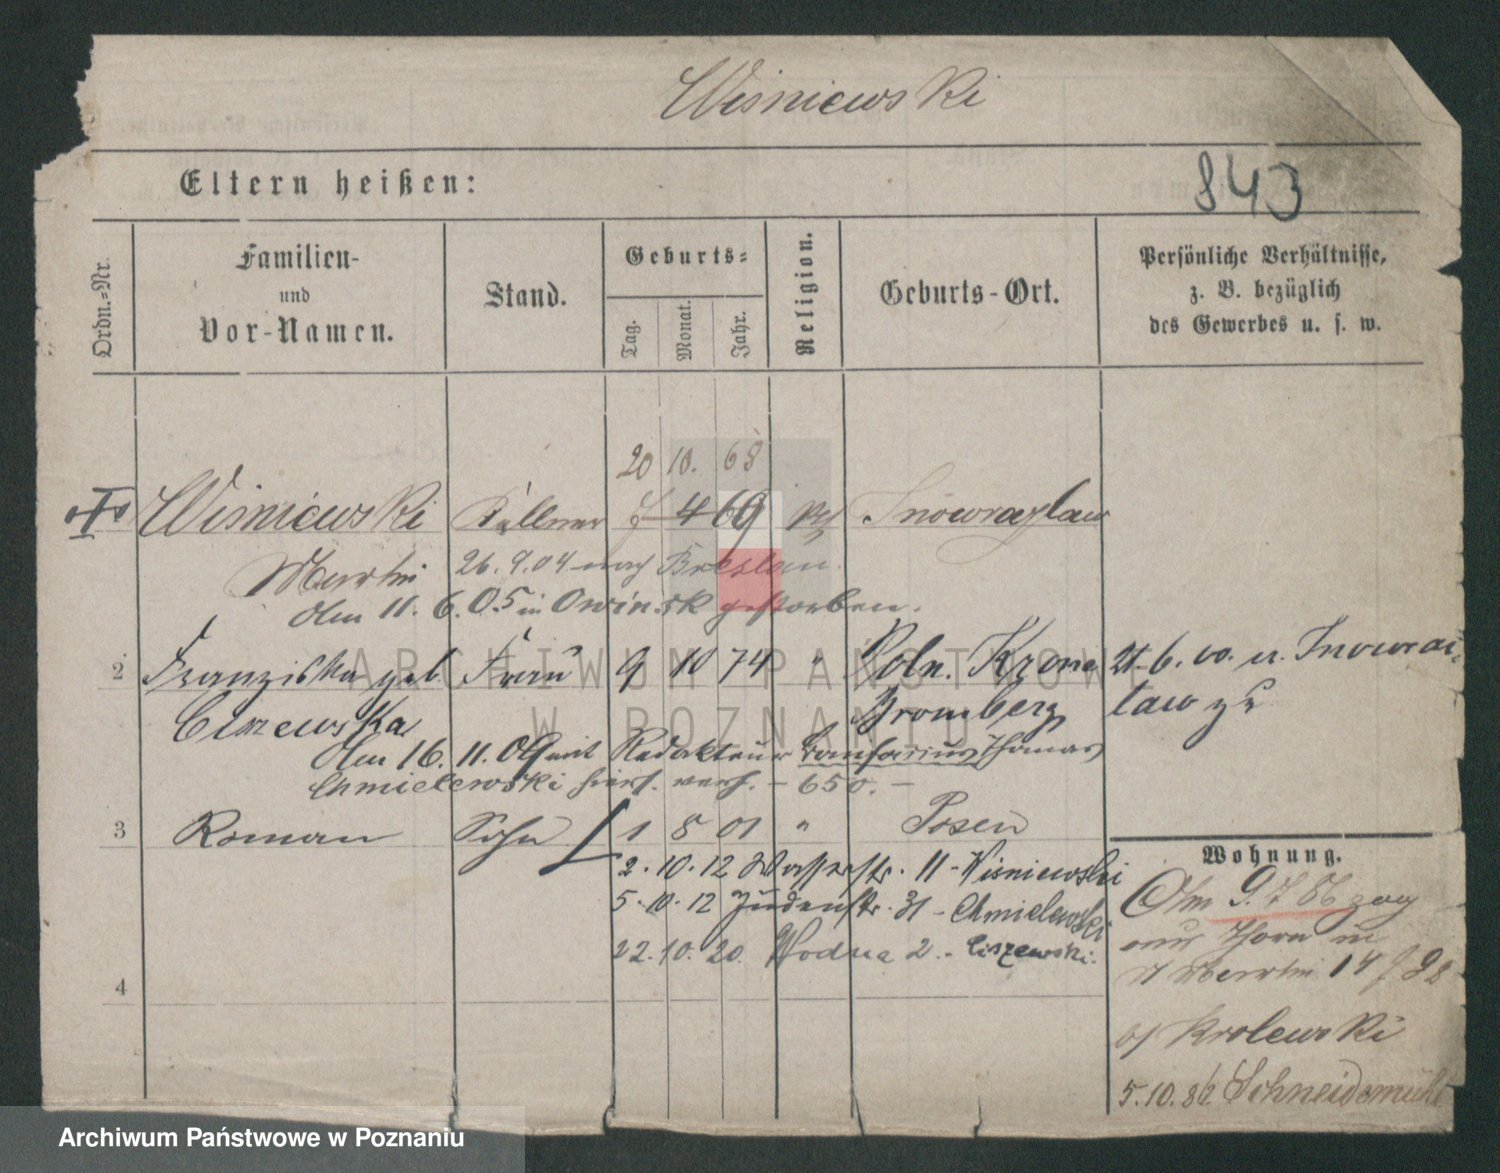 Wisniewski
843
Eltern heißen:
Ordn.-Nr.
Familien-
und
Vor-Namen.
Stand.
Geburts-
Tag.
Monat.
Jahr.
Religion.
Geburts-Ort.
Persönliche Verhältnisse,
z. B. bezüglich
des Gewerbes u. s. w.
20 10. 68
Wisniewski Kellner 7 4 69 Inowrazlaw
Martin 26. 9. 04 nach Breslau.
Am 11. 6. 05 in Owinsk gestorben.
2 Franziska geb. Frau 9 10 74 " Poln. Krone
Bromberg
Am 16. 11. mit Redakteur Thomas
Chmielewski hier. verh. - 650. -
3 Roman Sohn 1 8 01 " Posen
2. 10. 12 Wasserstr. 11 - Wisniewski
5. 10. 12 Judenstr. 31 - Chmielewski
22. 10. 20. Wodna 2. - Ciszewski.
4
Wohnung.
Am 9. 7. 86 zog
aus Thorn in
Martin 14
b/ Krolewski
5. 10. 86 Schneidemühl
ARCHIWUM PAŃSTWOWE
W POZNANIU
Archiwum Państwowe w Poznaniu